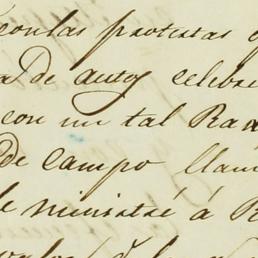 con las protestas
a de autos celebre
con un tal Ra
de campo llam
le ministré á R